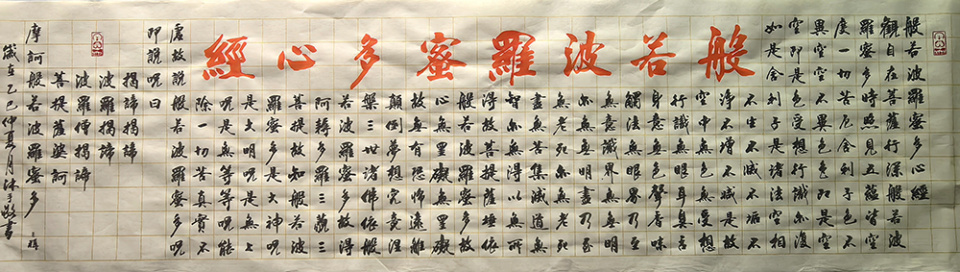 般若波羅蜜多心經
般若波羅蜜多心經
觀自在菩薩行深般若波
羅蜜多時照見五蘊皆空
度一切苦厄舍利子色不
異空空不異色色即是空
空即是色受想行識亦復
如是舍利子是諸法空相
不生不滅不垢不
淨不增不減是故
空中無色無受想
行識無眼耳鼻舌
身意無色聲香味
觸法無眼界乃至
無意識界無無明
亦無無明盡乃至
無老死亦無老死
盡無苦集滅道無
智亦無得以無所
得故菩提薩埵依
般若波羅蜜多故
心無罣礙無罣礙
故無有恐怖遠離
顛倒夢想究竟涅
槃三世諸佛依般
若波羅蜜多故得
阿耨多羅三藐三
菩提故知般若波
羅蜜多是大神呪
是大明呪是無上
呪是無等等呪能
除一切苦真實不
虛故說般若波羅蜜多呪
即說呪曰
揭諦揭諦
波羅揭諦
波羅僧揭諦
菩提薩婆訶
摩訶般若波羅蜜多
歲在乙巳仲夏月沐手敬書